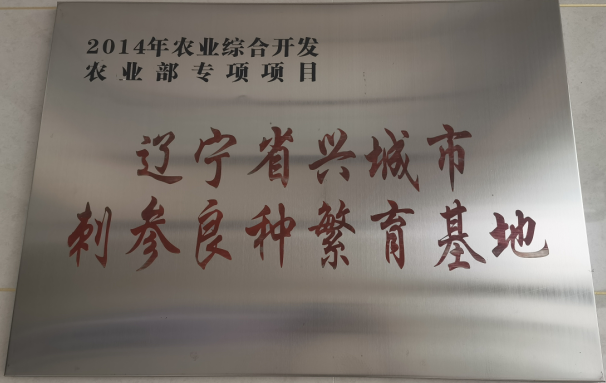 2014年农业综合开发
农业部专项项目
辽宁省兴城市
刺参良种繁育基地